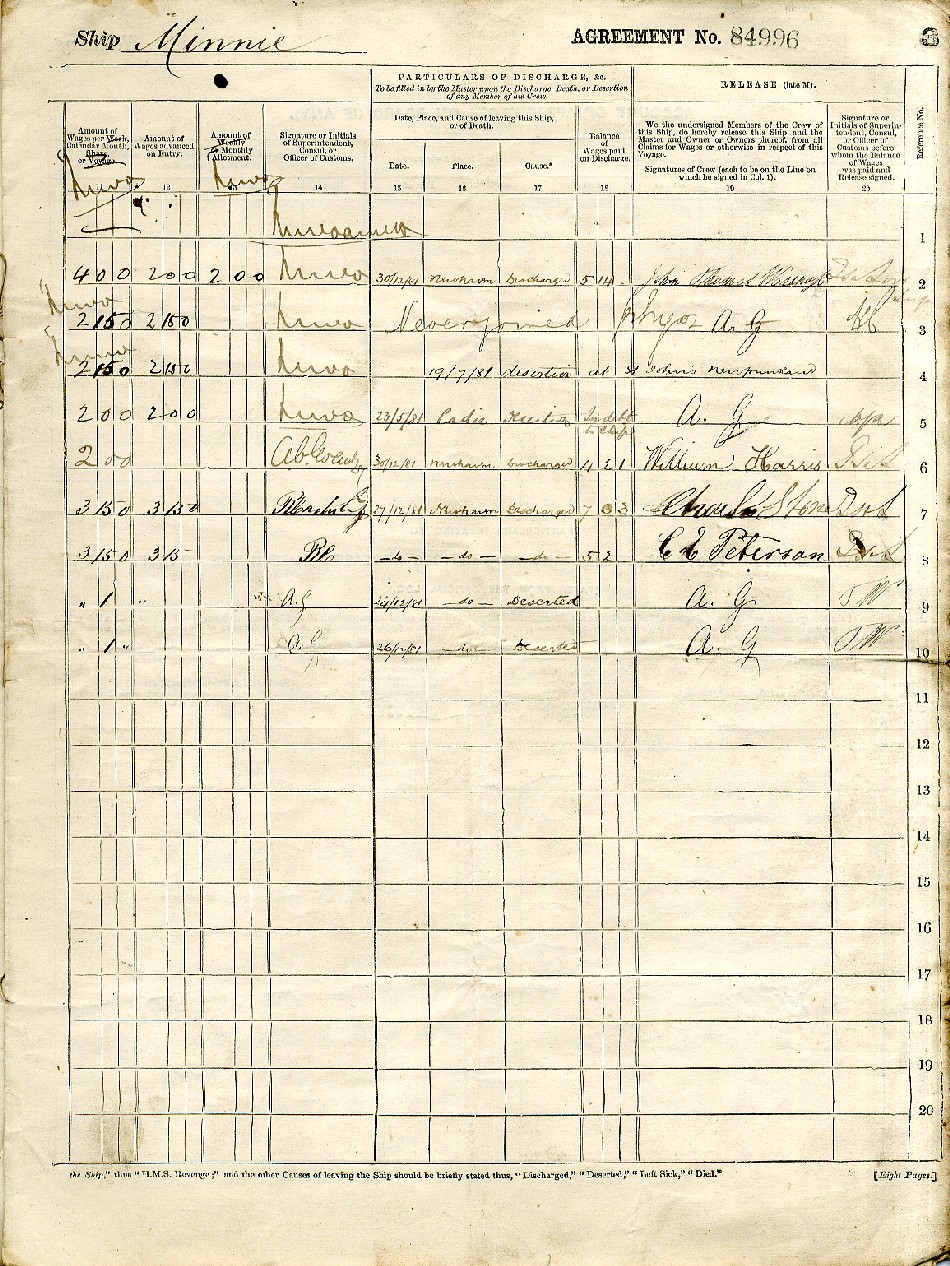 Ship Minnie AGREEMENT No. 84996 3
PARTICULARS OF DISCHARGE, &c.
To be filled in by the Master upon the Discharge Death, or Desertion
of any Member of his Crew.
RELEASE (late M).
Amount of
Wages per Week,
Calendar Month,
Share,
or Voyage.
Amount of
Wages advanced
on Entry.
Amount of
Weekly
or Monthly
Allotment.
Signature or Initials
of Superintendent,
Consul, or
Officer of Customs.
Date, Place, and Cause of leaving this Ship,
or of Death.
Date. Place. Cause.*
Balance
of
Wages paid
on Discharge.
We the undersigned Members of the Crew of
this Ship, do hereby release this Ship and the
Master and Owner or Owners thereof from all
Claims for Wages or otherwise in respect of this
Voyage.
Signatures of Crew (each to be on the Line on
which he signed in Col. 1).
Signature or
Initials of Superin-
tendent, Consul,
or Officer of
Customs before
whom the Balance
of Wages
was paid and
Release signed.
Reference No.
12 13 14 15 16 17 18 19 20
1
4 0 0 2 0 0 2 0 0 30/12/81 Discharged 5 14 John Thomas 2
2 15 0 2 15 0 Never joined A. G 3
2 15 0 2 15 0 19/7/81 desertion at St John's Newfoundland 4
2 0 0 2 0 0 23/5/81 Cadiz In debt to Ship A. G 5
2 0 0 30/12/81 Discharged 4 2 1 William Harris 6
3 15 0 3 15 0 27/12/81 Discharged 7 0 3 Charles Stone 7
3 15 0 3 15 — do — — do — — do — 5 2 C E Peterson 8
" 1 " A.G — do — Deserted A. G. 9
" 1 " A G 26/12/81 — do — Deserted A. G 10
11
12
13
14
15
16
17
18
19
20
the Ship," thus "H.M.S. Revenge;" and the other Causes of leaving the Ship should be briefly stated thus, "Discharged," "Deserted," "Left Sick," "Died."
[Eight Pages.]